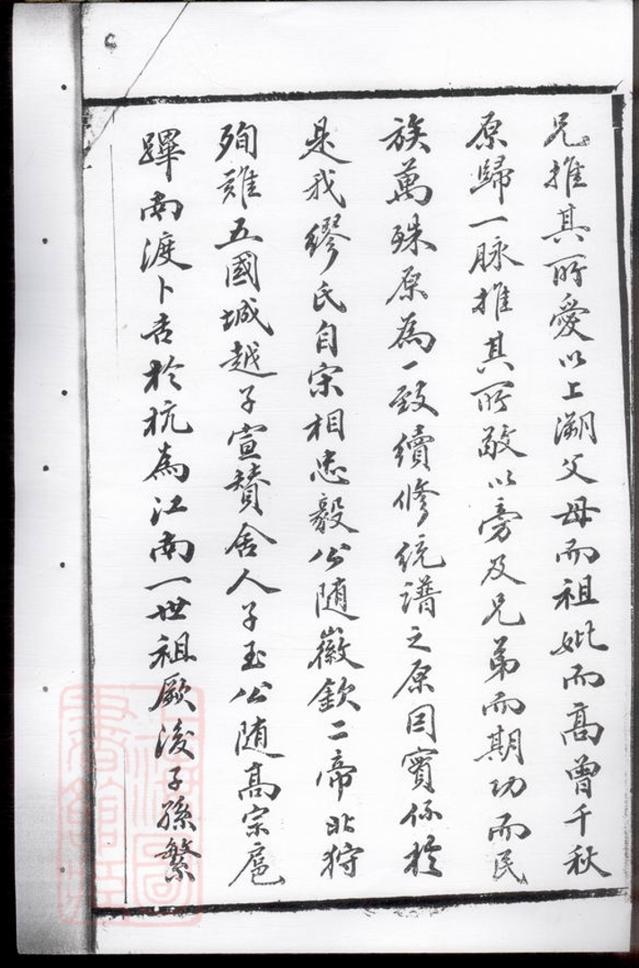 兄推其所愛以上溯父母而祖妣而高曾千秋
原歸一脉推其所敬以旁及兄弟而期功而民
族萬殊原為一致續修統譜之原因實係於
是我繆氏自宋相忠毅公随徽欽二帝北狩
殉難五國城越子宣贊舍人子玉公随高宗扈
蹕南渡卜吉於杭為江南一世祖厥後子孫繁